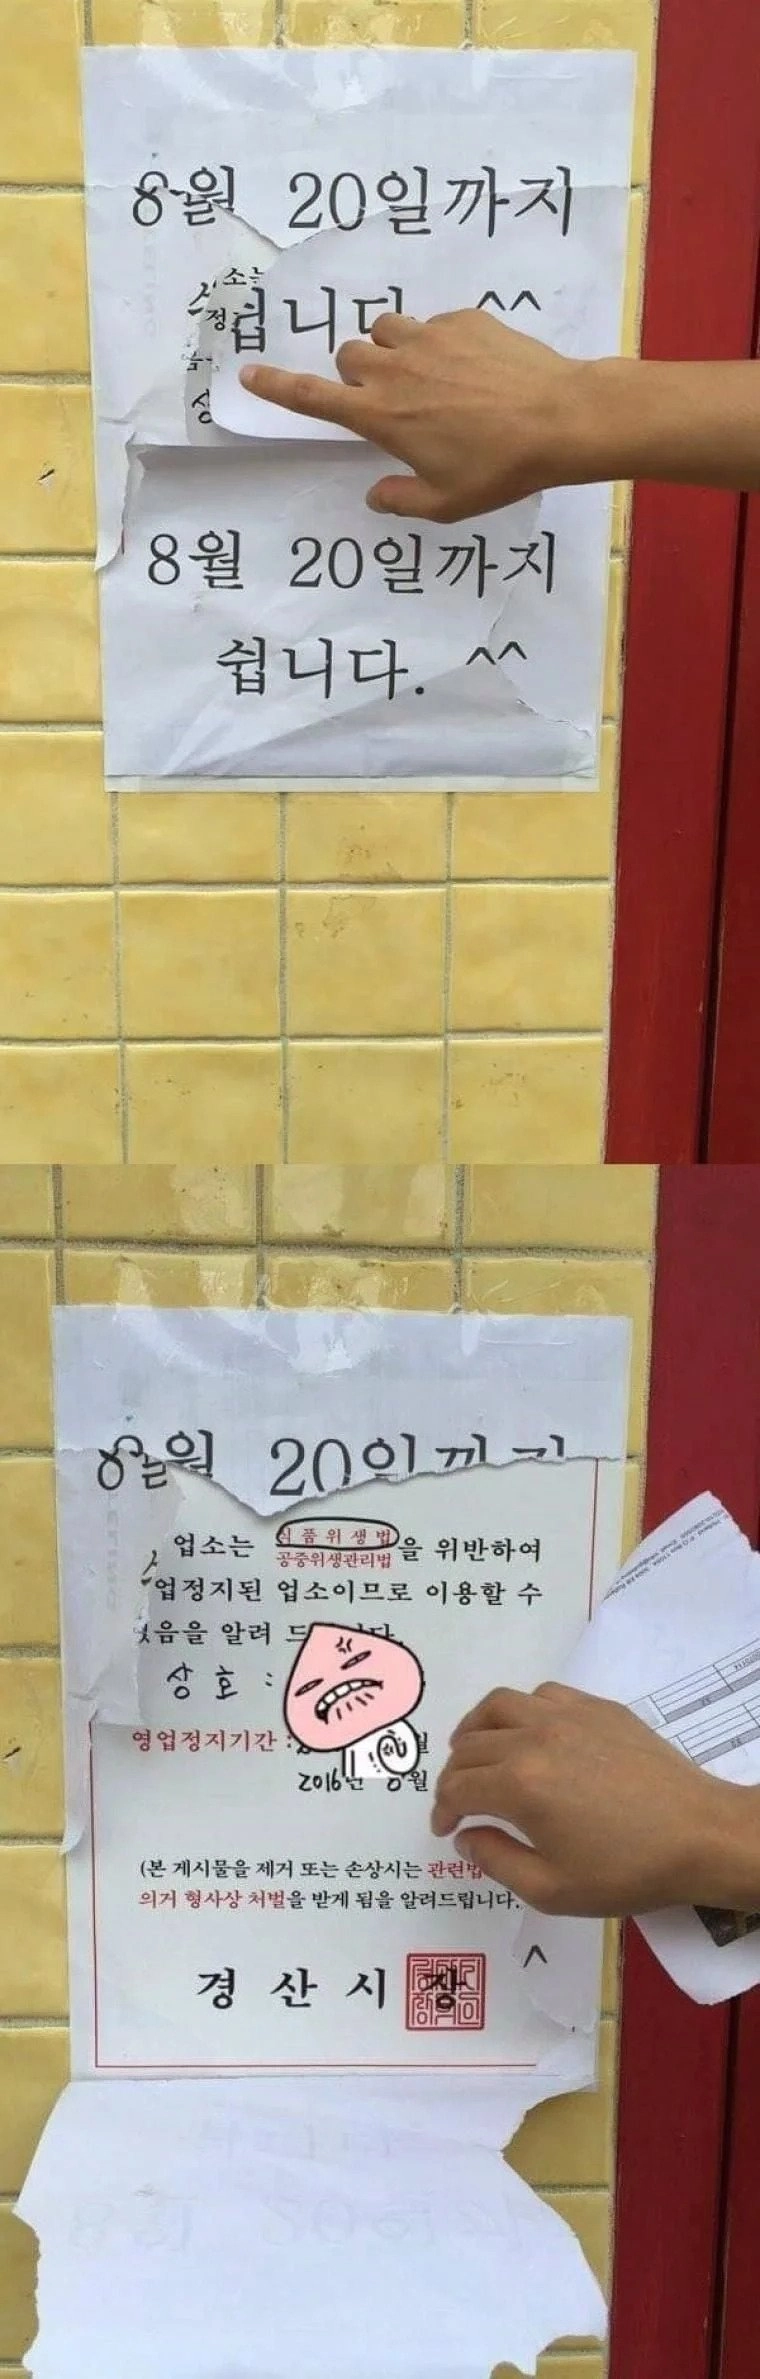 8월 20일까지
쉽니다. ^^
소는
정
상
8월 20일까지
쉽니다. ^^
8월 20일까지
업소는 식품위생법
공중위생관리법 을 위반하여
업정지된 업소이므로 이용할 수
음을 알려 드
상호 :
영업정지기간 :
2016년 8월
(본 게시물을 제거 또는 손상시는 관련법
의거 형사상 처벌을 받게 됨을 알려드립니다.
^
경산시장